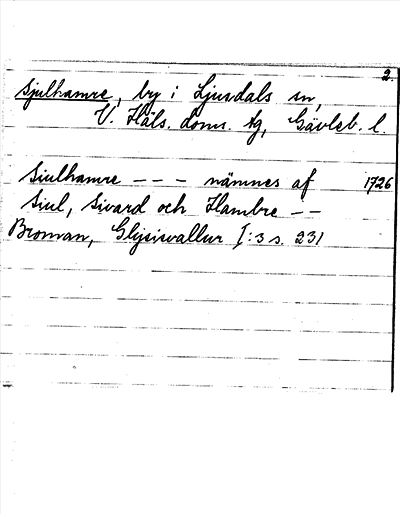 2.
Sjulhamre, by i Ljusdals sn,
V. Häls. doms. tg, Gävleb. l.
Siulhamre - - - nämnes af 1726
Siul, Sivard och Hambre - -
Broman, Glysisvallur I:3 s. 231